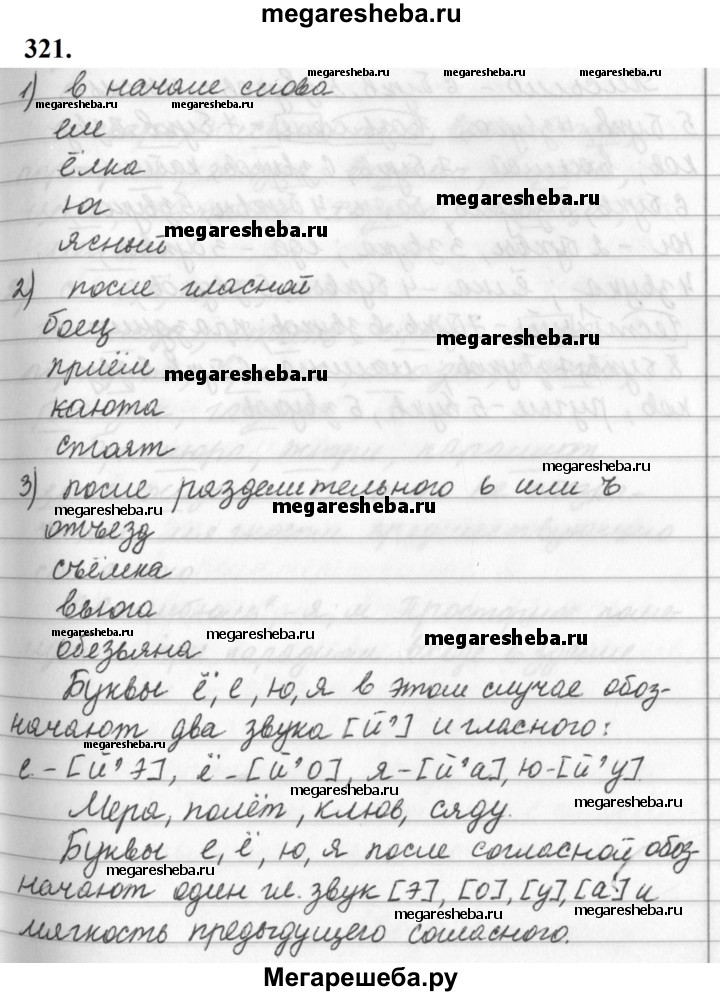 megaresheba.ru
321.
1) в начале слова
megaresheba.ru megaresheba.ru megaresheba.ru
ем
ёлка
megaresheba.ru
юг
megaresheba.ru
ясный
2) после гласной
боец
megaresheba.ru
приём
megaresheba.ru
каюта
стоят
megaresheba.ru
3) после разделительного ь или ъ
megaresheba.ru megaresheba.ru
отъезд
съёмка
вьюга
megaresheba.ru megaresheba.ru megaresheba.ru
обезьяна
Буквы ё, е, ю, я в этом случае обоз-
начают два звука [й'] и гласного:
megaresheba.ru megaresheba.ru
е - [й'э], ё - [й'о], я - [й'а], ю - [й'у]
megaresheba.ru
Мера, полёт, клюв, сяду.
Буквы е, ё, ю, я после согласной, обоз-
megaresheba.ru
начают один гл. звук [э], [о], [у], [а] и
megaresheba.ru
мягкость предыдущего согласного.
megaresheba.ru
Мегарешеба.ру